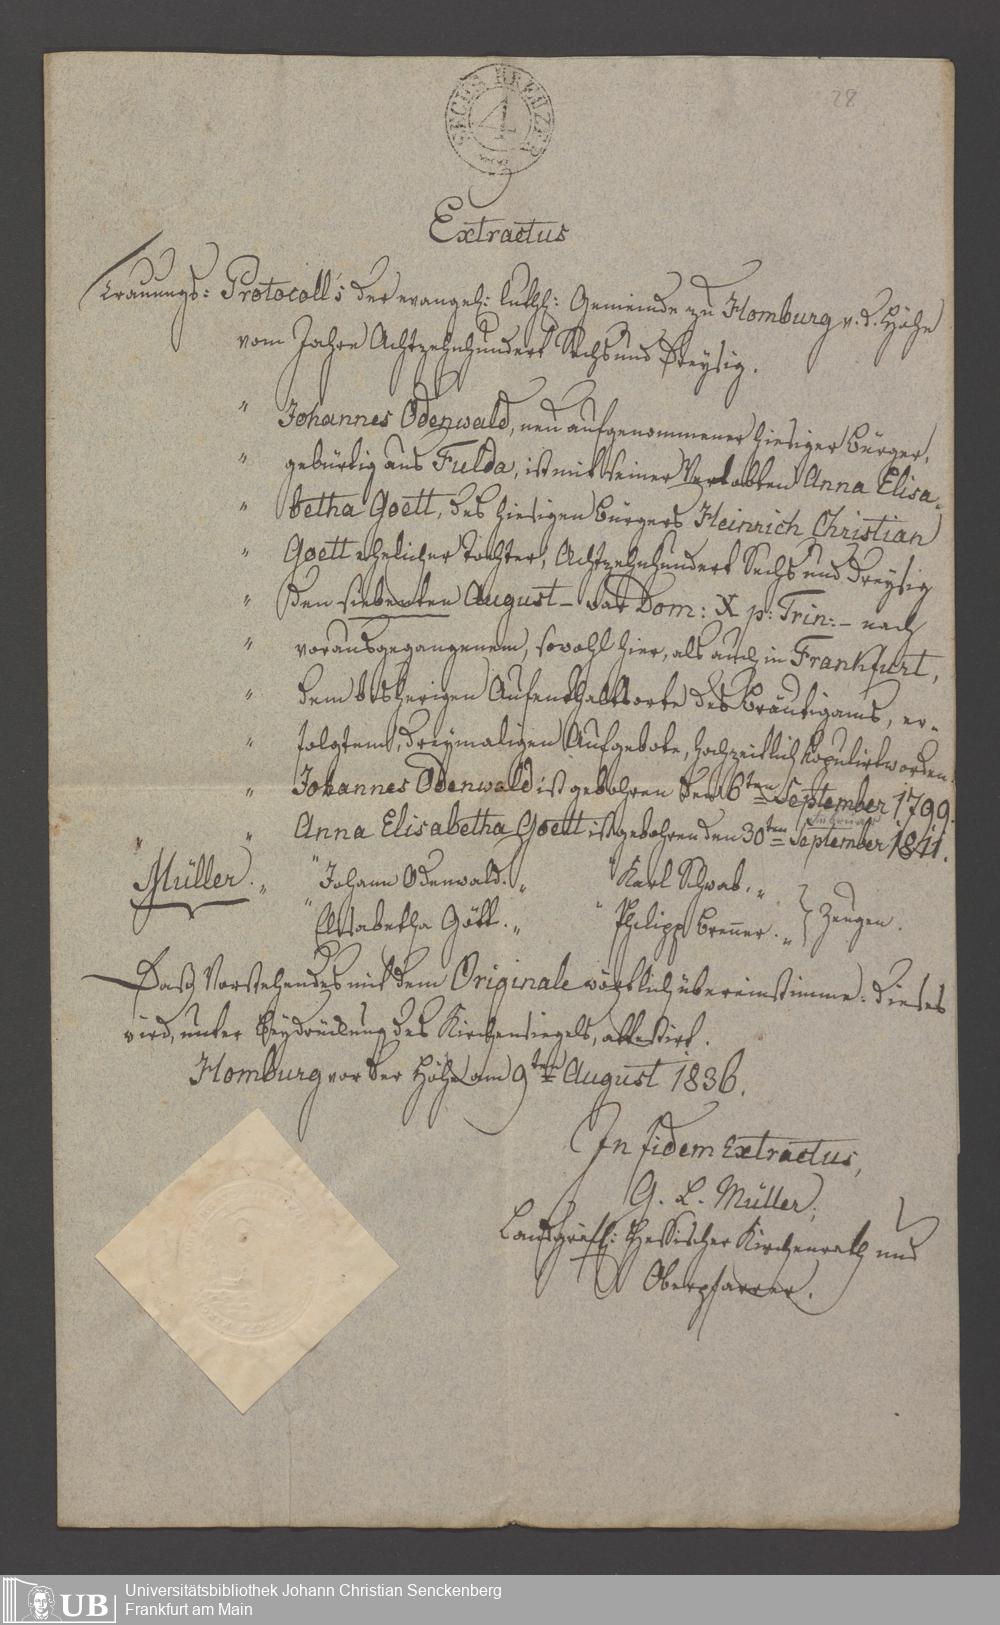 28
SECHS KREUZER
4
Extractus
Trauungs: Protocoll's der evangel: luthl: Gemeinde zu Homburg v. d. Höhe
vom Jahre Achtzehnhundert Sechs und Dreysig.
" Johannes Odenwald, neu aufgenommener hiesiger Bürger,
" gebürtig aus Fulda, ist mit seiner Verlobten Anna Elisa-
" betha Goett, des hiesigen Bürgers Heinrich Christian
" Goett ehelicher Tochter, Achtzehnhundert Sechs und Dreysig
" den siebenten August – war Dom: X p: Trin: – nach
" vorausgegangenem, sowohl hier, als auch in Frankfurt,
" dem bisherigen Aufenthaltsorte des Bräutigams, er-
" folgtem, dreymaligen Aufgebote, hochzeitlich kopulirt worden.
" Johannes Odenwald ist gebohren den 6ten September 1799.
Februar
" " Anna Elisabetha Goett ist gebohren den 30ten September 1811.
Müller. " "Johann Odenwald. " "Karl Schwab. "
"Elisabetha Gött. " "Philipp Brenner. " } Zeugen.
Daß Vorstehendes mit dem Originale wörtlich übereinstimme. dieses
wird, unter Beydrückung des Kirchensiegels, attestirt.
Homburg vor der Höhe am 9ten August 1836.
In fidem Extractus,
G. L. Müller,
Landgräfl: Hessischer Kirchenrath und
Oberpfarrer.
UB
Universitätsbibliothek Johann Christian Senckenberg
Frankfurt am Main